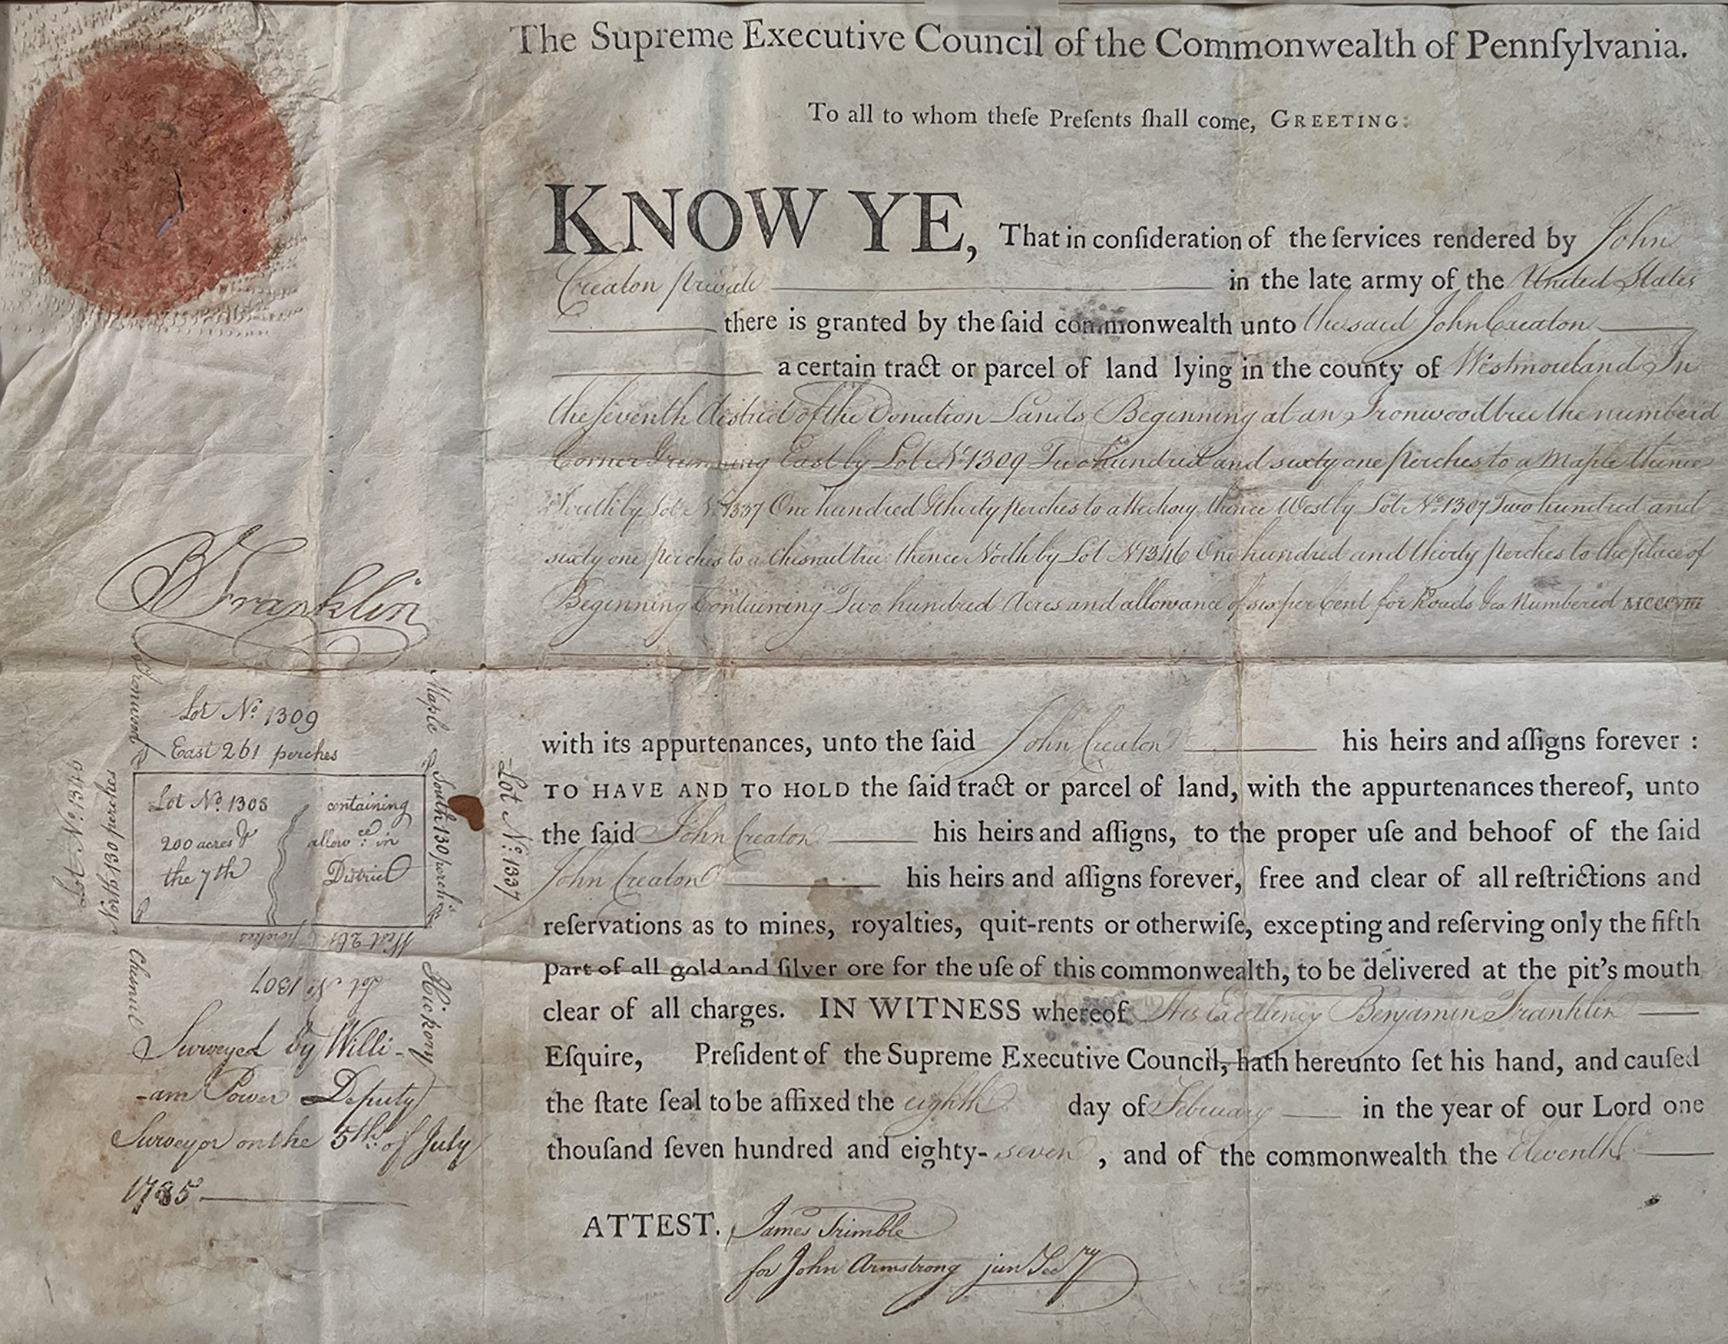 The Supreme Executive Council of the Commonwealth of Pennſylvania.
To all to whom theſe Preſents ſhall come, GREETING:
KNOW YE, That in conſideration of the ſervices rendered by John
Creaton private in the late army of the United States
there is granted by the ſaid commonwealth unto the said John Creaton
a certain tract or parcel of land lying in the county of Westmoreland In
the seventh district of the Donation Lands Beginning at an Ironwood tree the numberd
Corner & running East by Lot No 1309 Two hundred and sixty one perches to a Maple thence
South by Lot No 1337 One hundred & thirty perches to a Hickory thence West by Lot No 1307 Two hundred and
sixty one perches to a Chesnut tree thence North by Lot No 1346 One hundred and thirty perches to the place of
Beginning Containing Two hundred Acres and allowance of six per Cent for Roads &ca Numbered MCCCVIII
with its appurtenances, unto the ſaid John Creaton his heirs and aſſigns forever :
TO HAVE AND TO HOLD the ſaid tract or parcel of land, with the appurtenances thereof, unto
the ſaid John Creaton his heirs and aſſigns, to the proper uſe and behoof of the ſaid
John Creaton his heirs and aſſigns forever, free and clear of all reſtrictions and
reſervations as to mines, royalties, quit-rents or otherwiſe, excepting and reſerving only the fifth
part of all gold and ſilver ore for the uſe of this commonwealth, to be delivered at the pit's mouth
clear of all charges. IN WITNESS whereof His Excellency Benjamin Franklin
Eſquire, Preſident of the Supreme Executive Council, hath hereunto ſet his hand, and cauſed
the ſtate ſeal to be affixed the eighth day of February in the year of our Lord one
thouſand ſeven hundred and eighty- seven , and of the commonwealth the Eleventh
ATTEST. James Trimble
for John Armstrong jun Secry
B Franklin
Ironwood
Maple
Lot No. 1309
East 261 perches
Lot No. 1346
North 130 perches
Lot No. 1308 containing
200 acres & allowce. in
the 7th District
South 130 perches
Lot No. 1337
West 261 perches
Lot No 1307
Chesnut
Hickory
Surveyed by Willi-
-am Power Deputy
Surveyor on the 5th. of July
1785